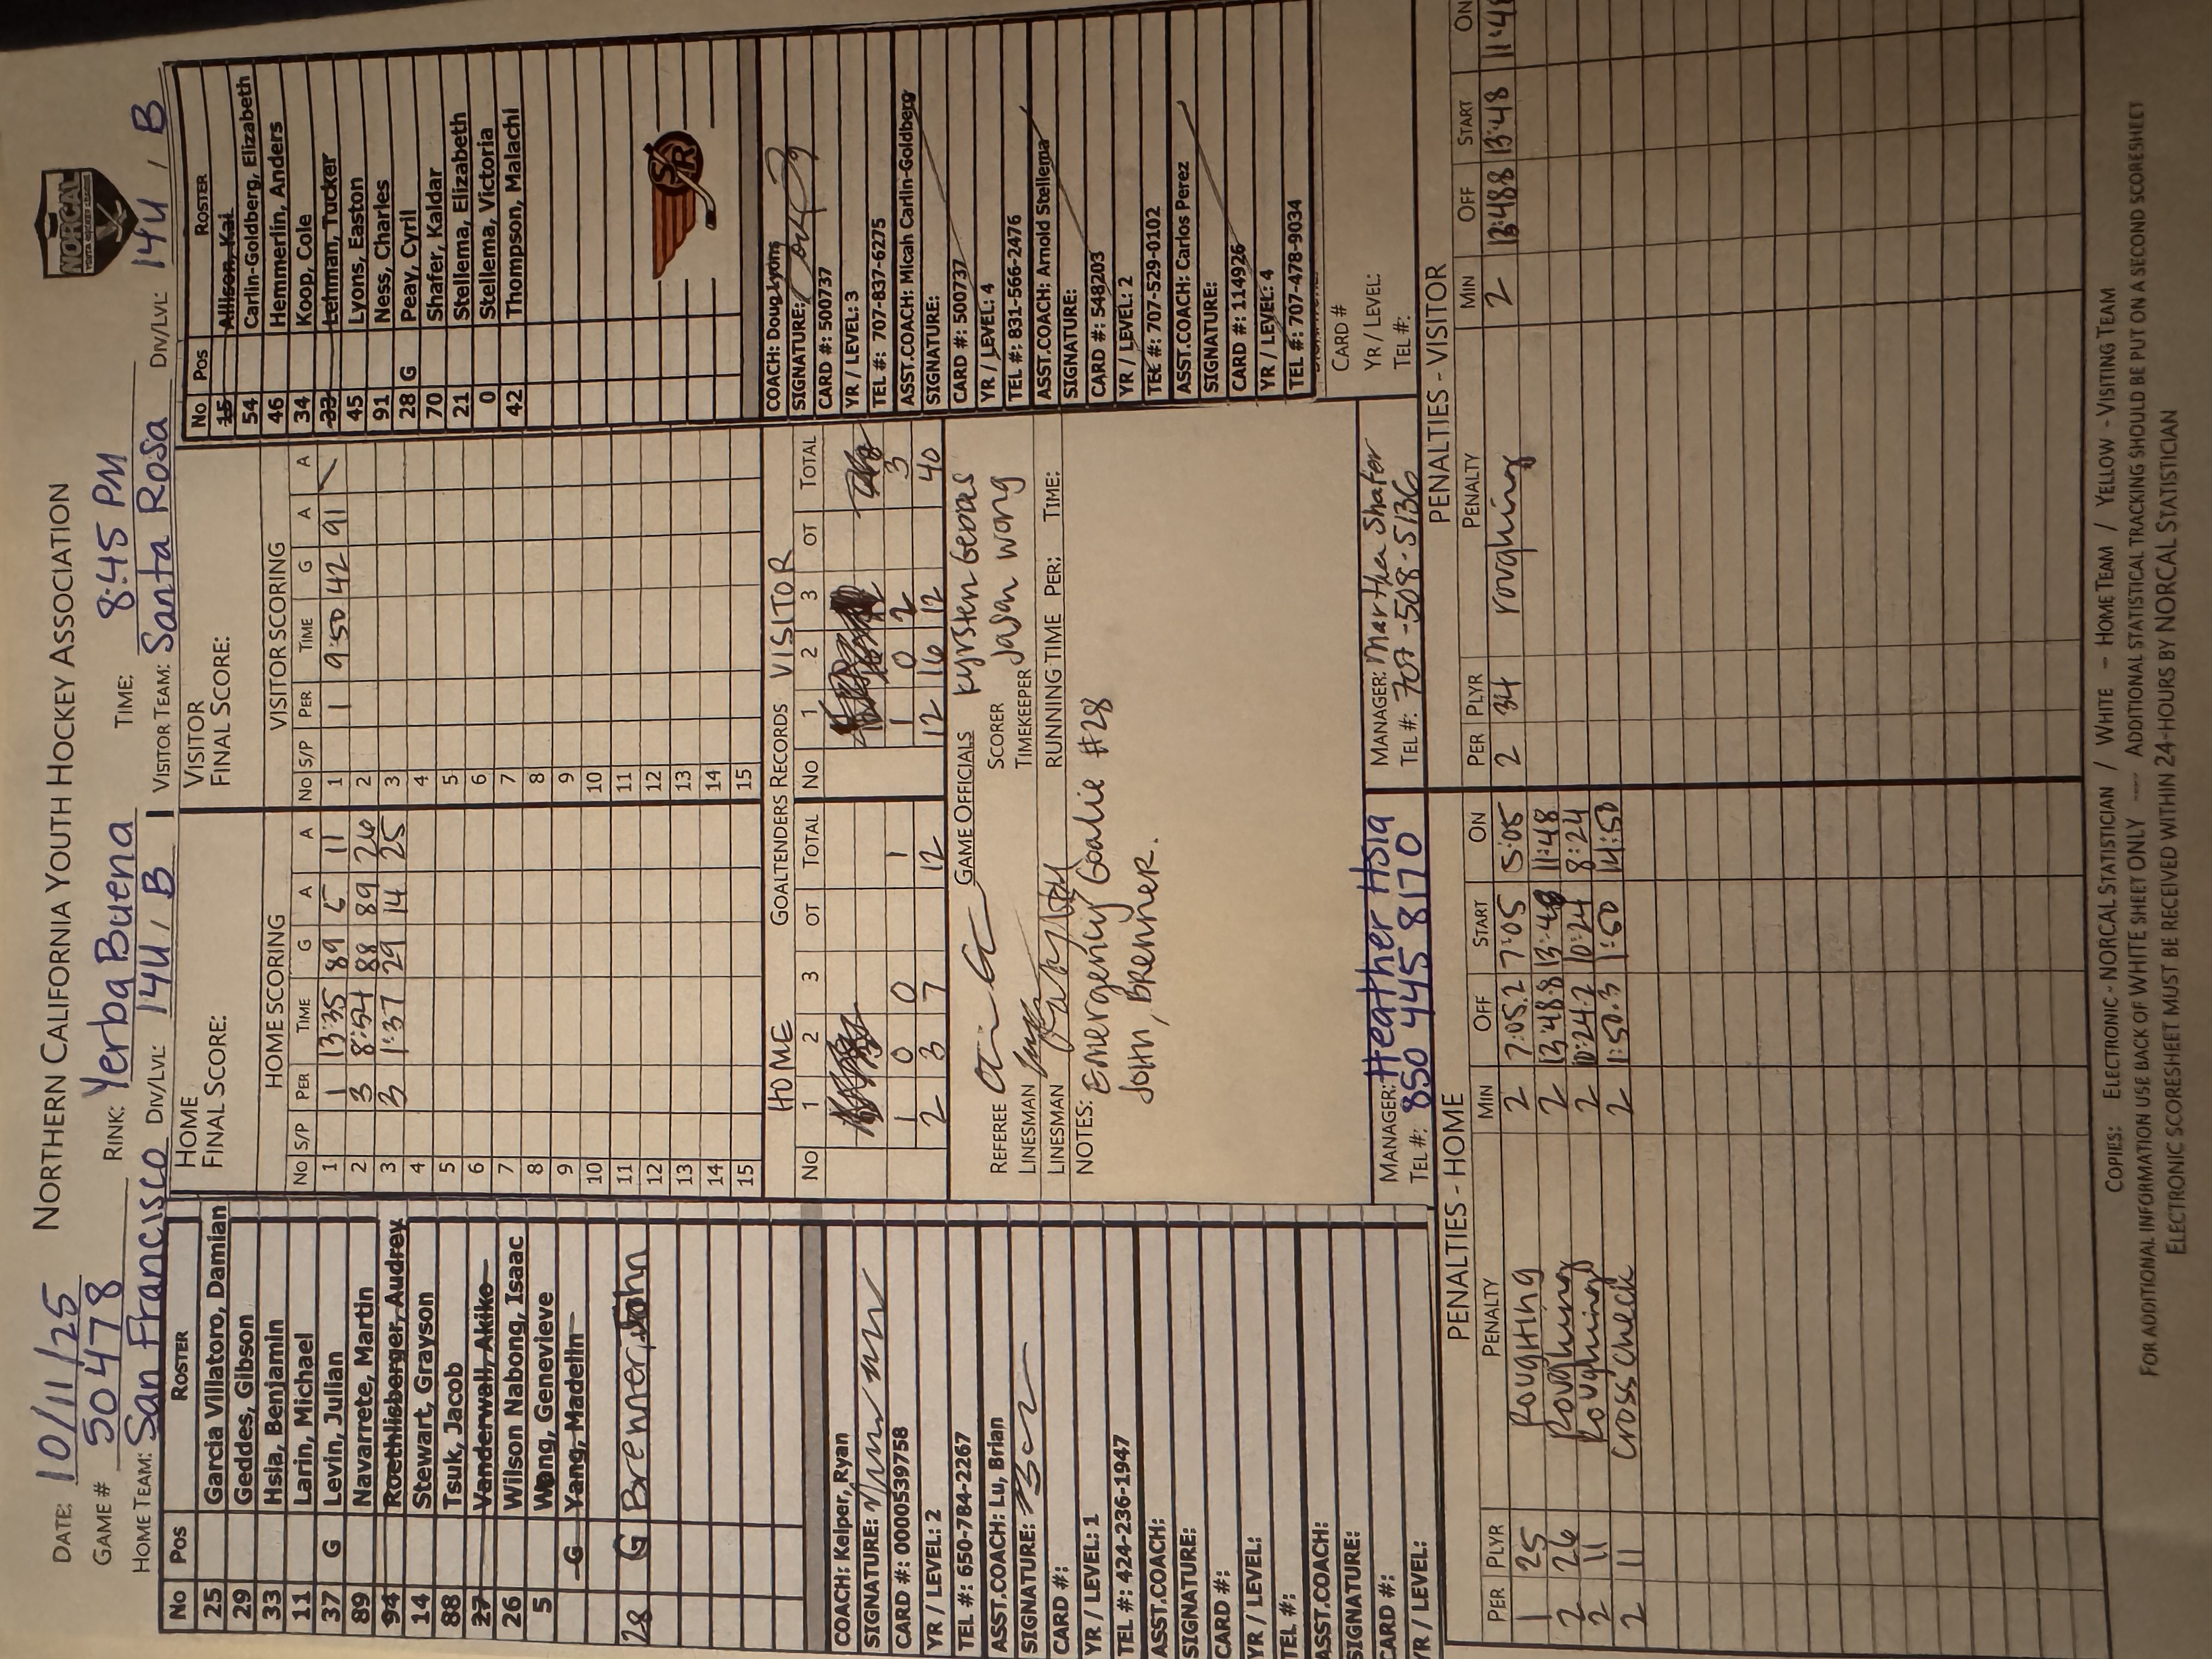 DATE: 10/11/25
NORTHERN CALIFORNIA YOUTH HOCKEY ASSOCIATION
NORCAL
GAME # 50478 RINK: Yerba Buena TIME: 8:45 PM
HOME TEAM: San Francisco DIV/LVL: 14U / B VISITOR TEAM: Santa Rosa DIV/LVL: 14U / B
No Pos ROSTER
25 Garcia Villatoro, Damian
29 Geddes, Gibson
33 Hsia, Benjamin
11 Larin, Michael
37 G Levin, Julian
89 Navarrete, Martin
94 Roethlisberger, Audrey
14 Stewart, Grayson
88 Tsuk, Jacob
27 Vanderwall, Akiko
26 Wilson Nabong, Isaac
5 Wong, Genevieve
G Yang, Madelin
28 G Brenner, John
COACH: Kelper, Ryan
SIGNATURE:
CARD #: 0000539758
YR / LEVEL: 2
TEL #: 650-784-2267
ASST.COACH: Lu, Brian
SIGNATURE:
CARD #:
YR / LEVEL: 1
TEL #: 424-236-1947
ASST.COACH:
SIGNATURE:
CARD #:
YR / LEVEL:
TEL #:
ASST.COACH:
SIGNATURE:
CARD #:
YR / LEVEL:
HOME
FINAL SCORE:
HOME SCORING
No S/P PER TIME G A A
1 1 13:35 89 5 11
2 3 8:54 88 89 26
3 3 1:37 29 14 25
4
5
6
7
8
9
10
11
12
13
14
15
VISITOR
FINAL SCORE:
VISITOR SCORING
No S/P PER TIME G A A
1 1 9:50 42 91 \
2
3
4
5
6
7
8
9
10
11
12
13
14
15
HOME GOALTENDERS RECORDS VISITOR
No 1 2 3 OT TOTAL No 1 2 3 OT TOTAL
1 0 0 1 1 0 2 3
2 3 7 12 12 16 12 40
REFEREE
GAME OFFICIALS
LINESMAN
SCORER Kyrsten
LINESMAN
TIMEKEEPER Jason Wong
RUNNING TIME PER: TIME:
NOTES: Emergency Goalie #28
John, Brenner.
MANAGER: Heather Hsia
TEL #: 850 445 8170
MANAGER: Martha Shafer
TEL #: 707-508-5136
No Pos ROSTER
15 Allison, Kai
54 Carlin-Goldberg, Elizabeth
46 Hemmerlin, Anders
34 Koop, Cole
33 Lehman, Tucker
45 Lyons, Easton
91 Ness, Charles
28 G Peay, Cyril
70 Shafer, Kaldar
21 Stellema, Elizabeth
0 Stellema, Victoria
42 Thompson, Malachi
SR
COACH: Doug Lyons
SIGNATURE:
CARD #: 500737
YR / LEVEL: 3
TEL #: 707-837-6275
ASST.COACH: Micah Carlin-Goldberg
SIGNATURE:
CARD #: 500737
YR / LEVEL: 4
TEL #: 831-566-2476
ASST.COACH: Arnold Stellema
SIGNATURE:
CARD #: 548203
YR / LEVEL: 2
TEL #: 707-529-0102
ASST.COACH: Carlos Perez
SIGNATURE:
CARD #: 1114926
YR / LEVEL: 4
TEL #: 707-478-9034
CARD #
YR / LEVEL:
TEL #:
PENALTIES - HOME
PER PLYR PENALTY MIN OFF START ON
1 25 Roughing 2 7:05.2 7:05 5:05
2 26 Roughing 2 13:48.8 13:48 11:48
2 11 Roughing 2 10:24.2 10:24 8:24
2 11 Cross Check 2 1:50.3 1:50 14:50
PENALTIES - VISITOR
PER PLYR PENALTY MIN OFF START ON
2 34 roughing 2 13:48.8 13:48 11:48
COPIES: ELECTRONIC - NORCAL STATISTICIAN / WHITE - HOME TEAM / YELLOW - VISITING TEAM
FOR ADDITIONAL INFORMATION USE BACK OF WHITE SHEET ONLY --- ADDITIONAL STATISTICAL TRACKING SHOULD BE PUT ON A SECOND SCORESHEET
ELECTRONIC SCORESHEET MUST BE RECEIVED WITHIN 24-HOURS BY NORCAL STATISTICIAN